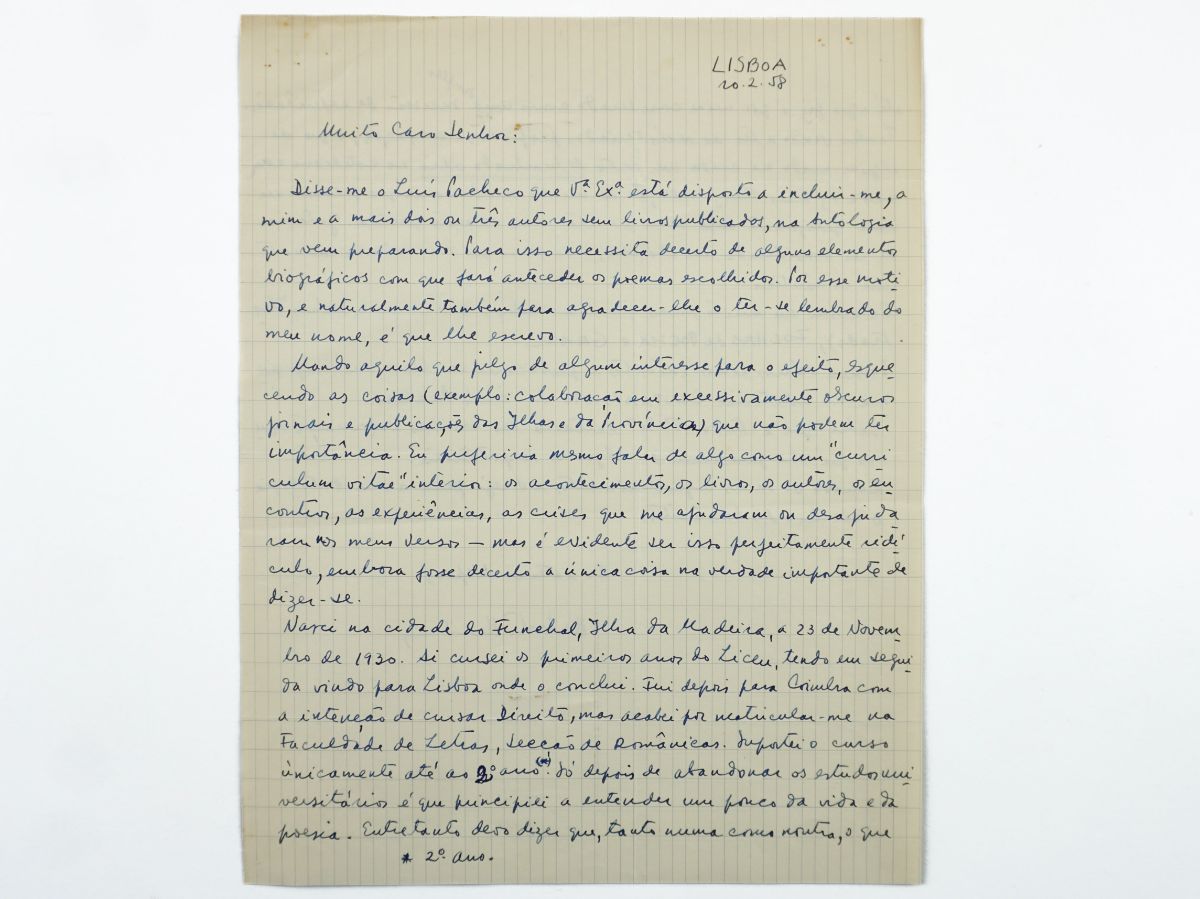 LISBOA
20.2.58
Muito Caro Senhor:
Disse-me o Luís Pacheco que Vª. Exª. está disposto a incluir-me, a
mim e a mais dois ou três autores sem livros publicados, na Antologia
que vem preparando. Para isso necessita decerto de alguns elementos
biográficos com que fará anteceder os poemas escolhidos. Por esse moti-
vo, e naturalmente também para agradecer-lhe o ter-se lembrado do
meu nome, é que lhe escrevo.
Mando aquilo que julgo de algum interesse para o efeito, esque-
cendo as coisas (exemplo: colaboração em excessivamente obscuros
jornais e publicações das Ilhas e da Província) que não podem ter
importância. Eu preferiria mesmo falar de algo como um "curri-
culum vitae" interior: os acontecimentos, os livros, os autores, os en-
contros, as experiências, as crises que me ajudaram ou desajuda-
ram nos meus versos — mas é evidente ser isso perfeitamente ridí-
culo, embora fosse decerto a única coisa na verdade importante de
dizer-se.
Nasci na cidade do Funchal, Ilha da Madeira, a 23 de Novem-
bro de 1930. Aí cursei os primeiros anos do Liceu, tendo em segui-
da vindo para Lisboa onde o concluí. Fui depois para Coimbra com
a intenção de cursar Direito, mas acabei por matricular-me na
Faculdade de Letras, Secção de Românicas. Suportei o curso
únicamente até ao 2º ano (*). Só depois de abandonar os estudos uni-
versitários é que principiei a entender um pouco da vida e da
poesia. Entretanto devo dizer que, tanto numa como noutra, o que
* 2º ano.